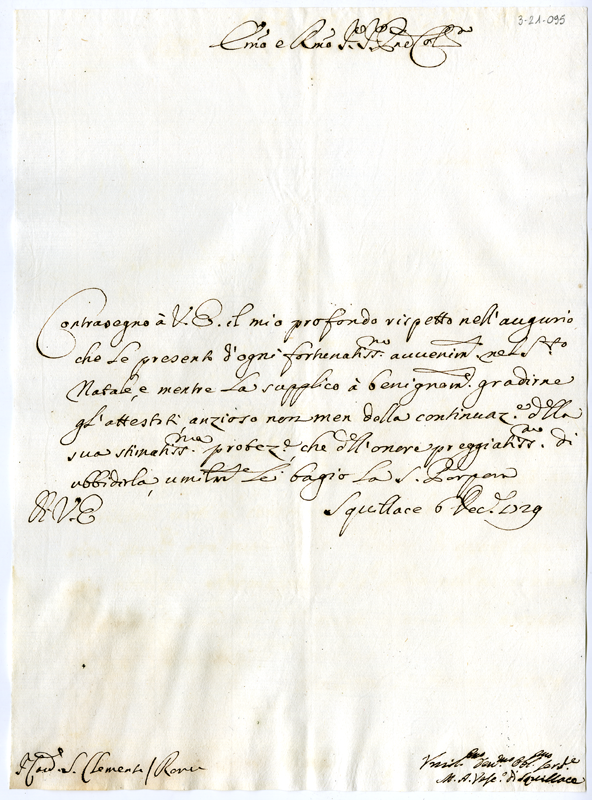 3-21-095
Emo e Rmo Sre Sre Pne Colmo
Contrasegno à V. E. il mio profondo rispetto nell'augurio,
che Le presento d'ogni fortunatissmo auuenimto nel Sto
Natale, e mentre La supplico à benignamte gradirne
gl'attestiti, anzioso non men della continuaze della
sua stimatissma proteze, che dell'onore preggiatissmo di
ubbidirla, umilmte Le bagio La S. Porpora
Di V. E.
Squillace 6 Decre 1729
S. Card. S. Clemente / Roma
Umilmo Devmo Obbmo Serre
M. A. Vesco di Squillace